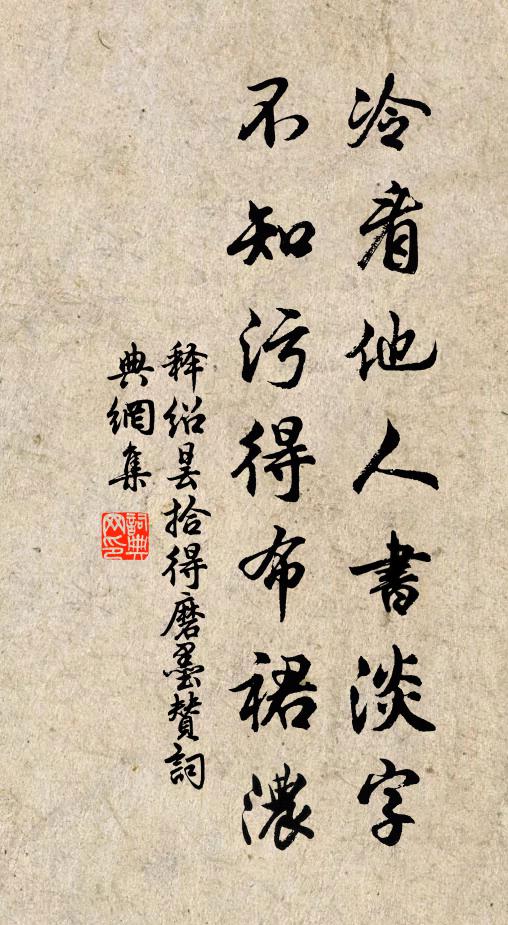 冷看他人書淡字
不知污得布裙濃
释绍昙拾得磨墨赞詞
典網集
詞典
网印